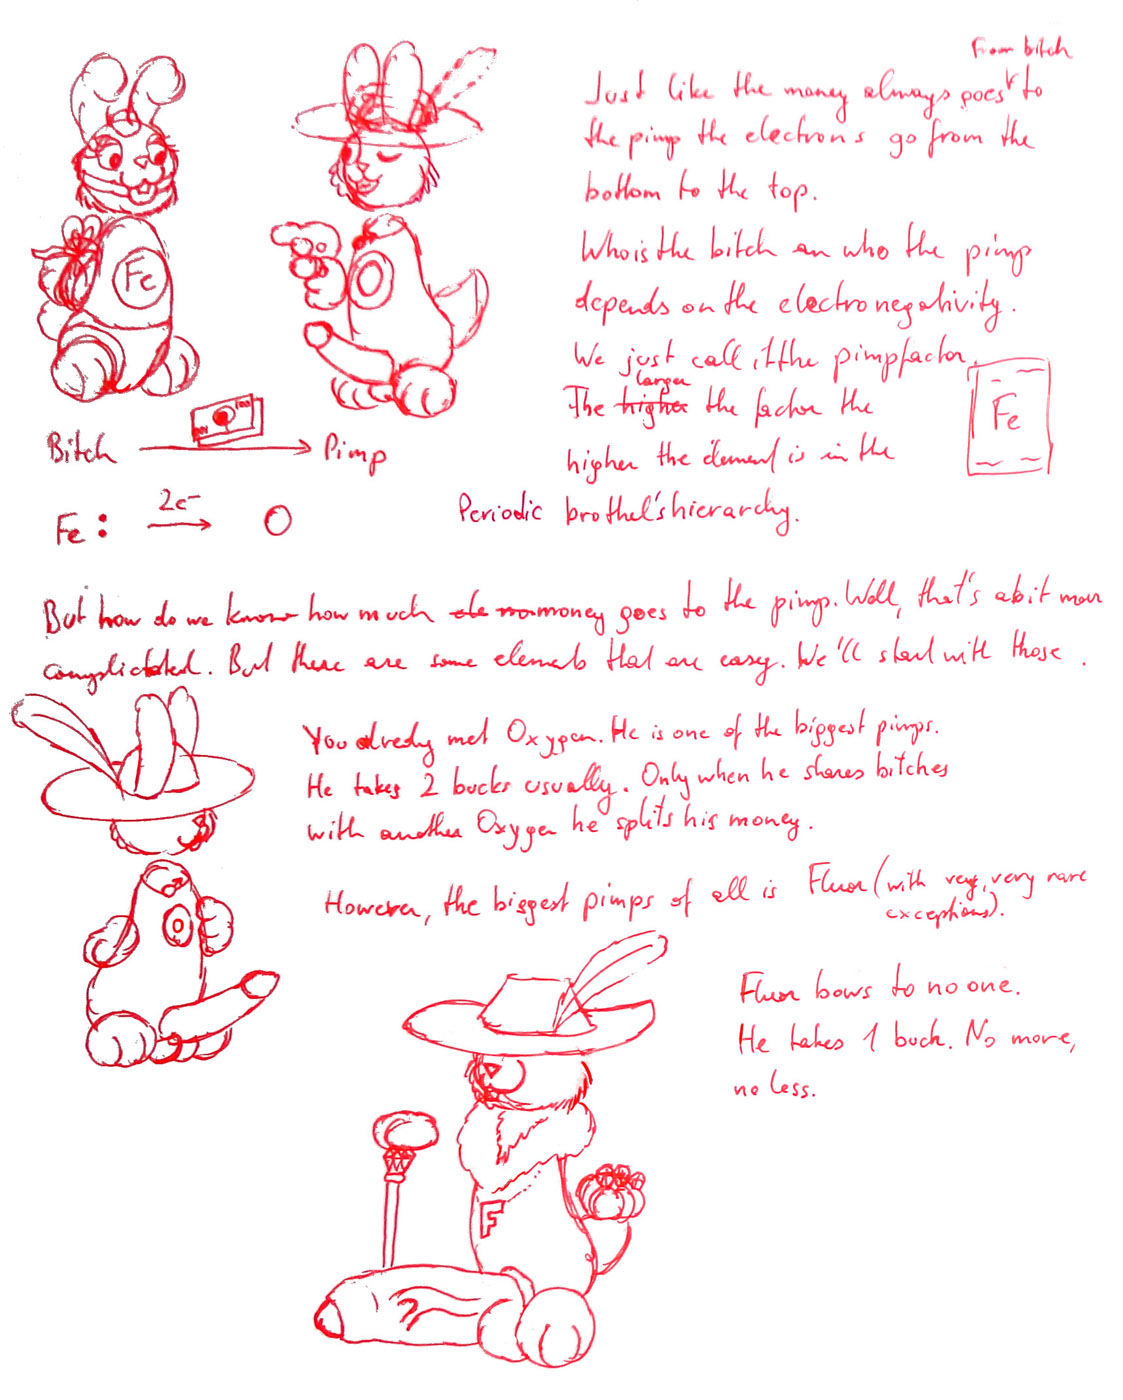 From bitch
Just like the money always goes to
the pimp the electrons go from the
bottom to the top.
Who is the bitch an who the pimp
depends on the electronegativity.
We just call it the pimpfactor.
larger
The higher the factor the
higher the element is in the
Periodic brothel's hierarchy.
Fe
Fe
O
100
Bitch → Pimp
2e-
Fe: → O
But how do we know how much money goes to the pimp. Well, that's a bit more
complicated. But there are some elements that are easy. We'll start with those.
You alredy met Oxygen. He is one of the biggest pimps.
He takes 2 bucks usually. Only when he shares bitches
with another Oxygen he splits his money.
O
However, the biggest pimps of all is Fluor (with very, very rare
exceptions).
Fluor bows to no one.
He takes 1 buck. No more,
no less.
F